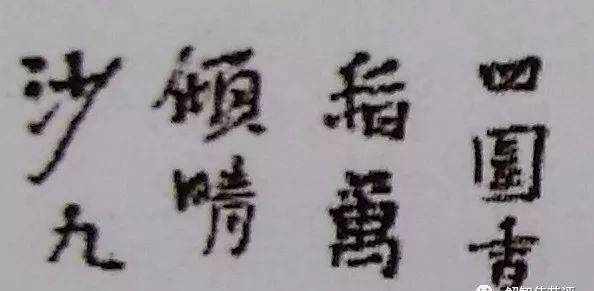 四圍香
稻萬
頃晴
沙九